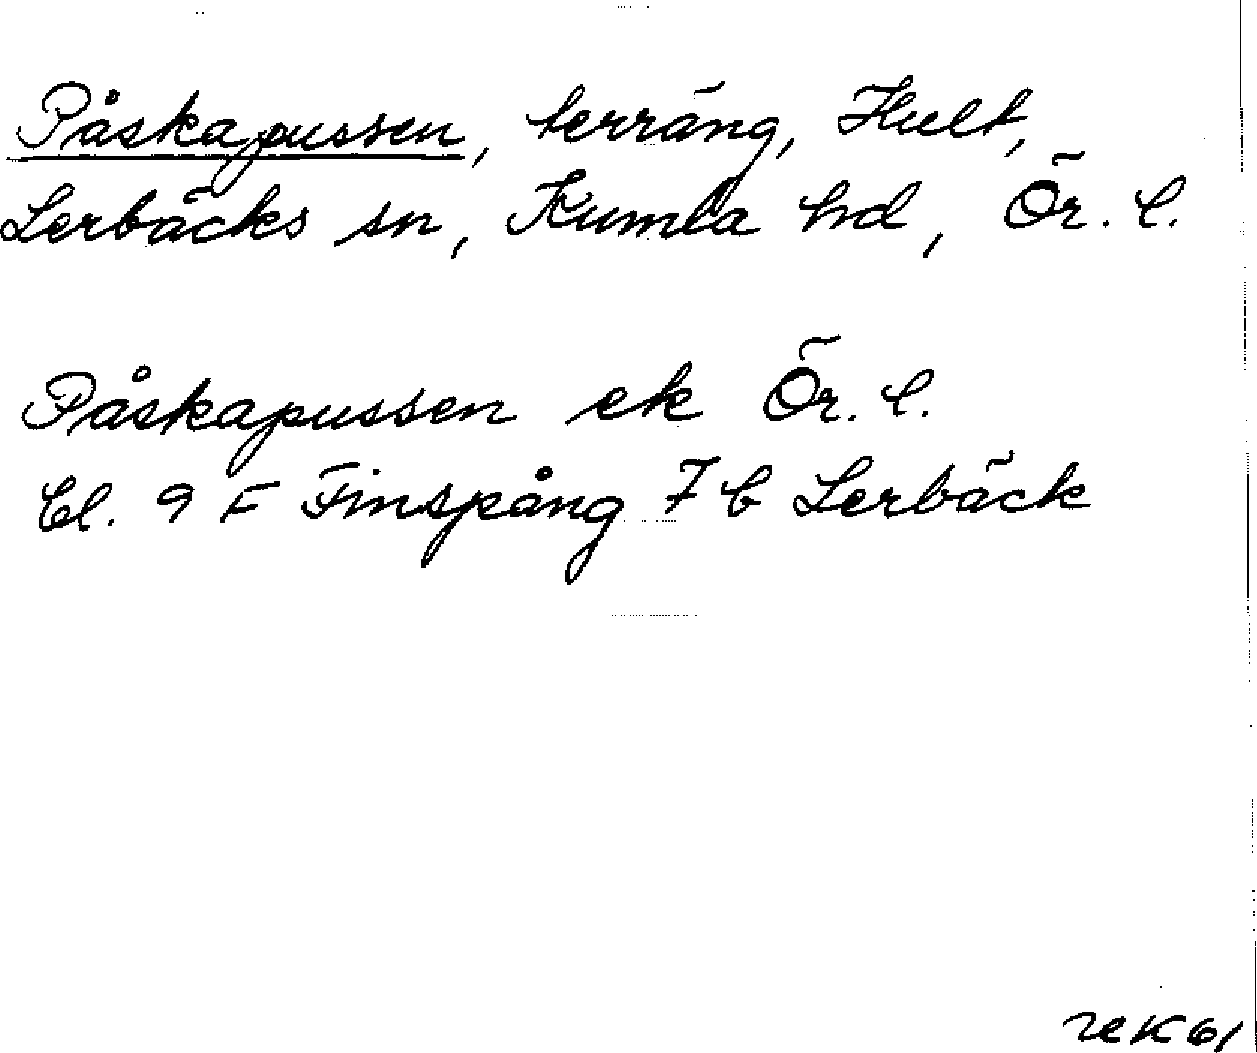 Påskapussen, terräng, Hult,
Lerbäcks sn, Kumla hd, Ör. l.
Påskapussen ek Ör. l.
bl. 9 F Finspång 7 b Lerbäck
REK 61